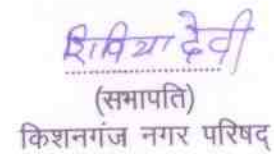 देवी
(सभापति)
किशनगंज नगर परिषद्